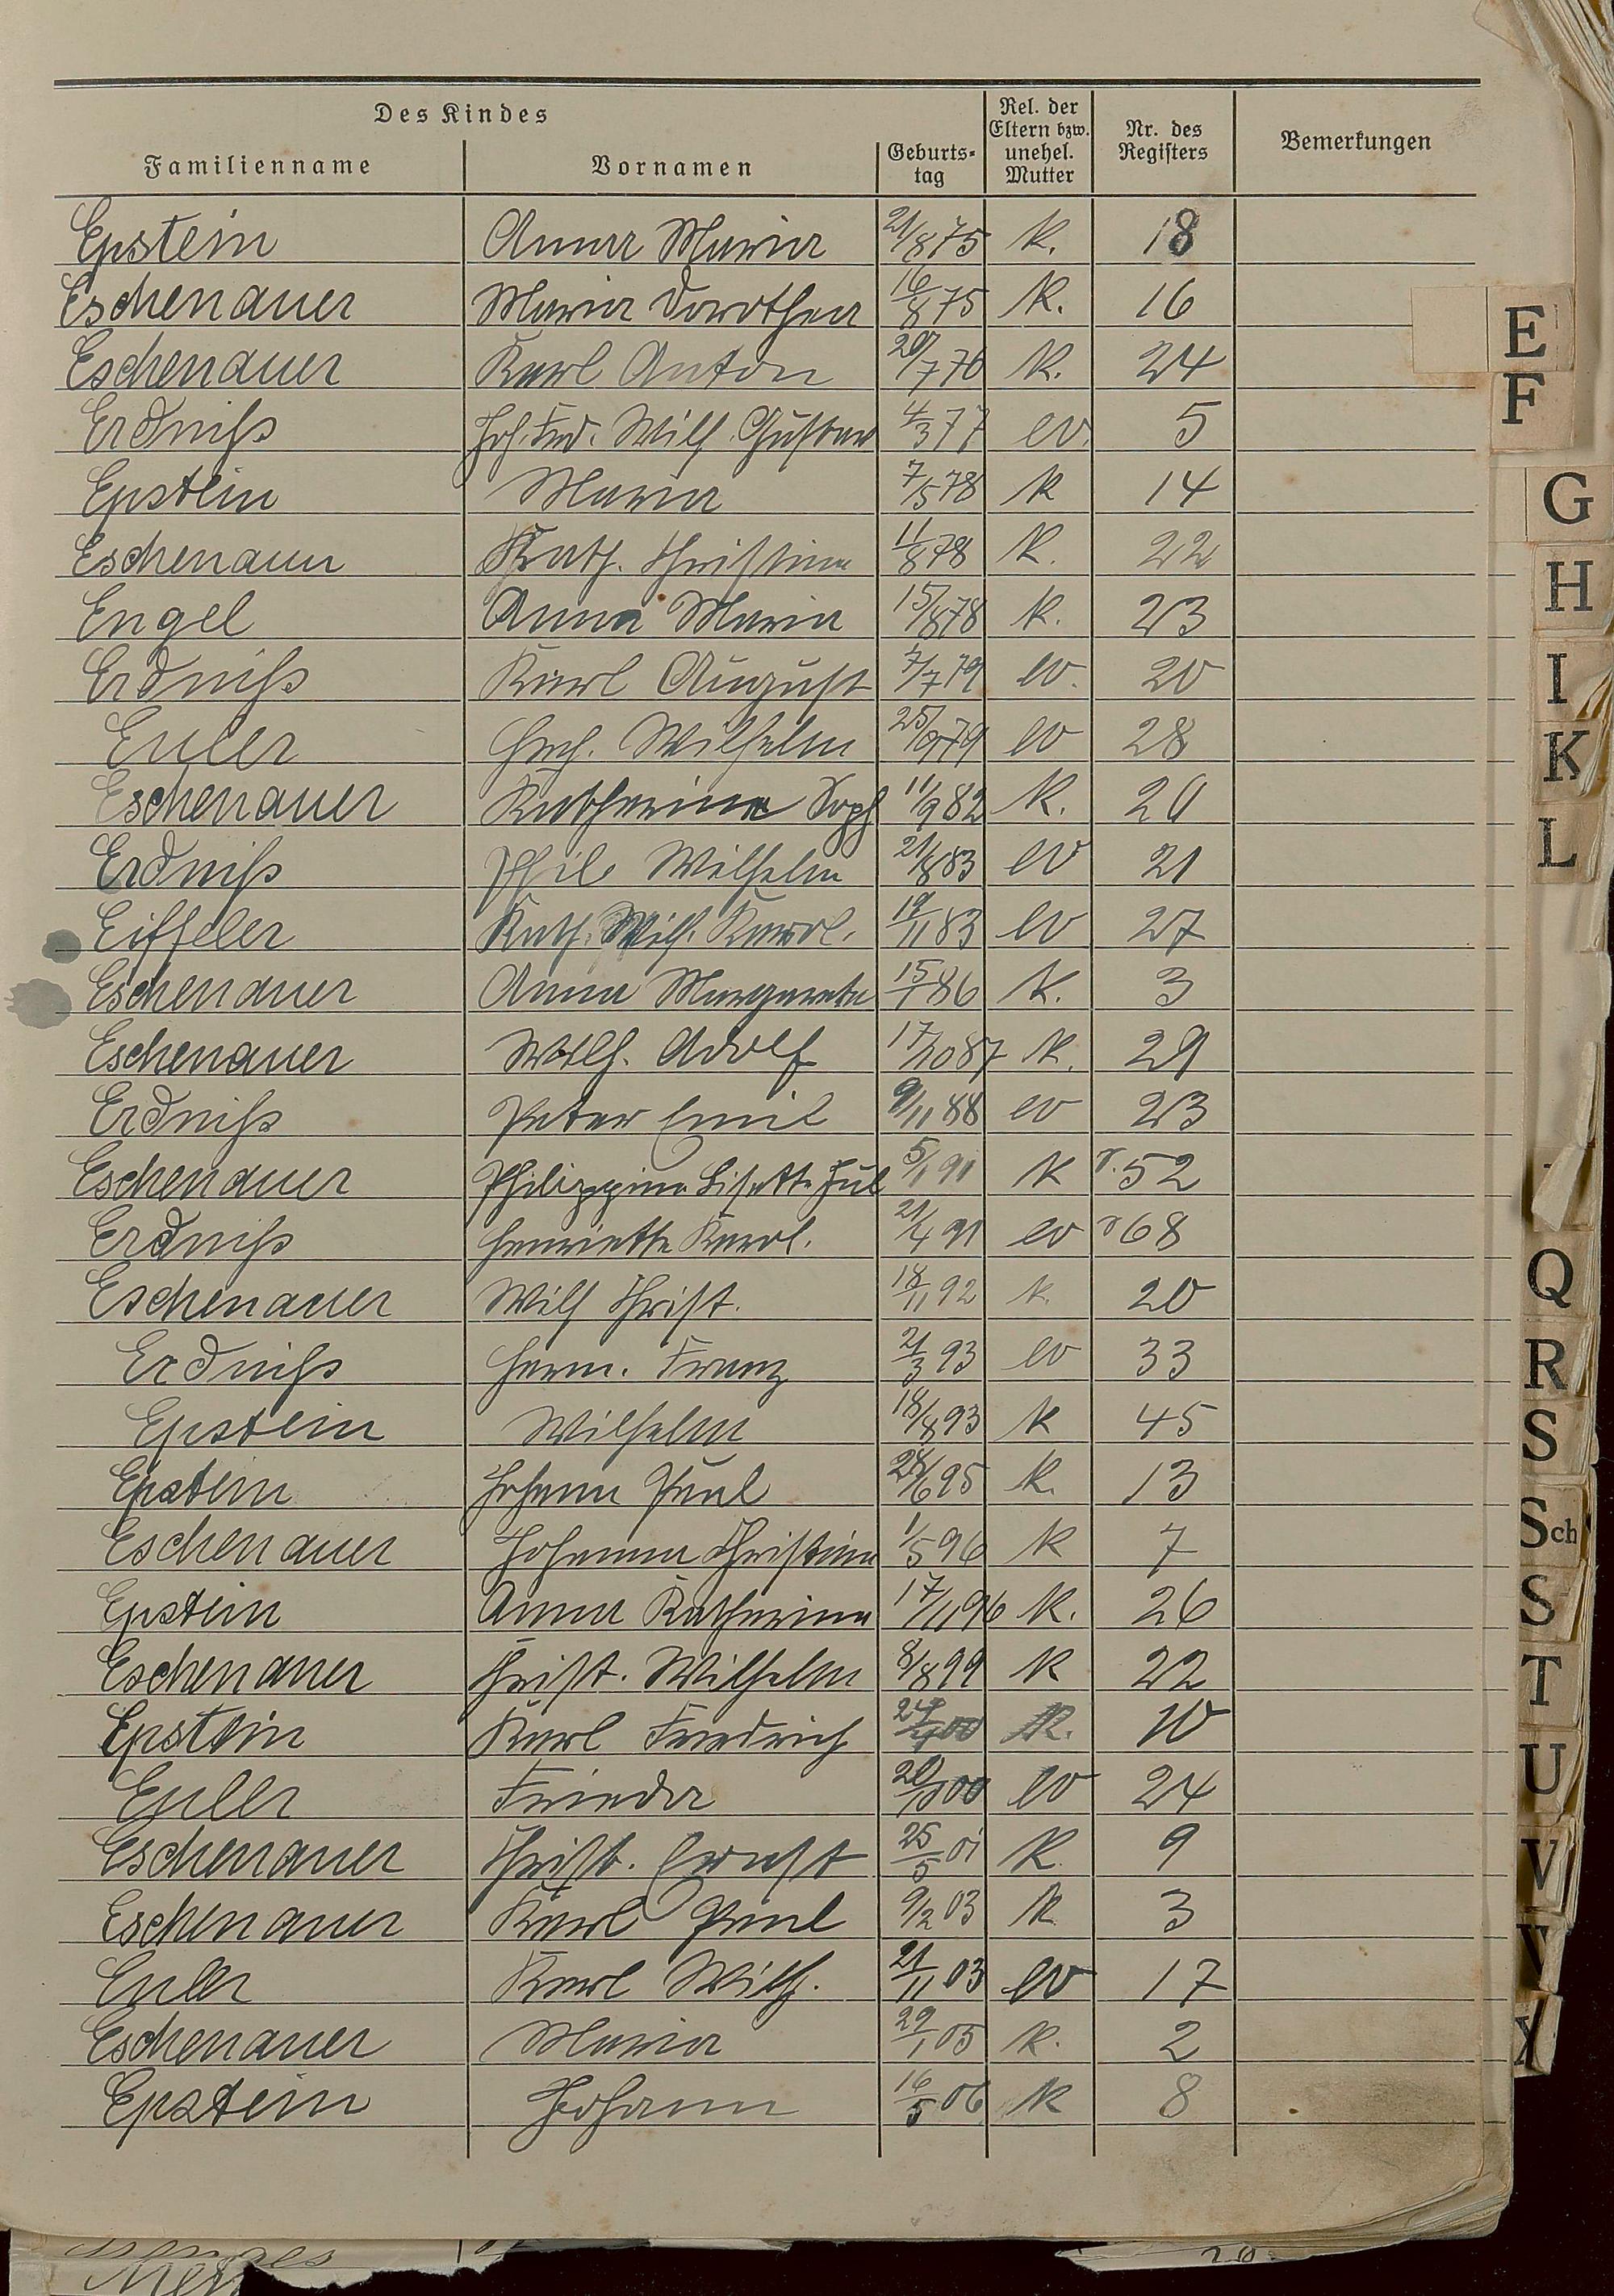 Des Kindes
Familienname Vornamen Geburts-tag Rel. der Eltern bzw. unehel. Mutter Nr. des Registers Bemerkungen
Epstein Anna Maria 21/8 75 K. 18
Eschenauer Maria Dorothea 16/8 75 K. 16
Eschenauer Karl Anton /7 76 K. 24
Erdniß Joh. Frd. Wilh. Gustav 4/3 77 ev. 5
Epstein Maria 7/5 78 K 14
Eschenauer Kath. Christina 11/8 78 K. 22
Engel Anna Maria 15/8 78 K. 23
Erdniß Karl August 7/7 79 ev. 20
Euler Hch. Wilhelm 25/9 79 ev 28
Eschenauer Katharina Soph 11/9 82 K. 20
Erdniß Phil. Wilhelm 21/8 83 ev 21
Eiffeler Kath. Wilh. Karol. 19/11 83 ev 27
Eschenauer Anna Margareta 15/1 86 K. 3
Eschenauer Wilh. Adolf 17/10 87 K. 29
Erdniß Peter Emil 9/11 88 ev 23
Eschenauer Philippina Lisette Jul 5/1 91 K r. 52
Erdniß Henriette Karol. 21/4 91 ev r 68
Eschenauer Wilh Christ. 18/11 92 K. 20
Erdniß Herm. Franz 21/3 93 ev 33
Epstein Wilhelm 18/8 93 K 45
Epstein Johann Paul 28/6 95 K. 13
Eschenauer Johanna Christina 1/5 96 K 7
Epstein Anna Katharina 17/11 96 K. 26
Eschenauer Christ. Wilhelm 8/8 99 K 22
Epstein Karl Friedrich 00 K. 10
Euler Frieda 00 ev 24
Eschenauer Christ. Ernst 25/5 01 K. 9
Eschenauer Karl Paul 9/2 03 K. 3
Euler Karl Wilh. 21/11 03 ev 17
Eschenauer Maria 29/1 05 K. 2
Epstein Johann 16/5 06 K 8
E
F
G
H
I
K
L
Q
R
S
Sch
S
T
U
V